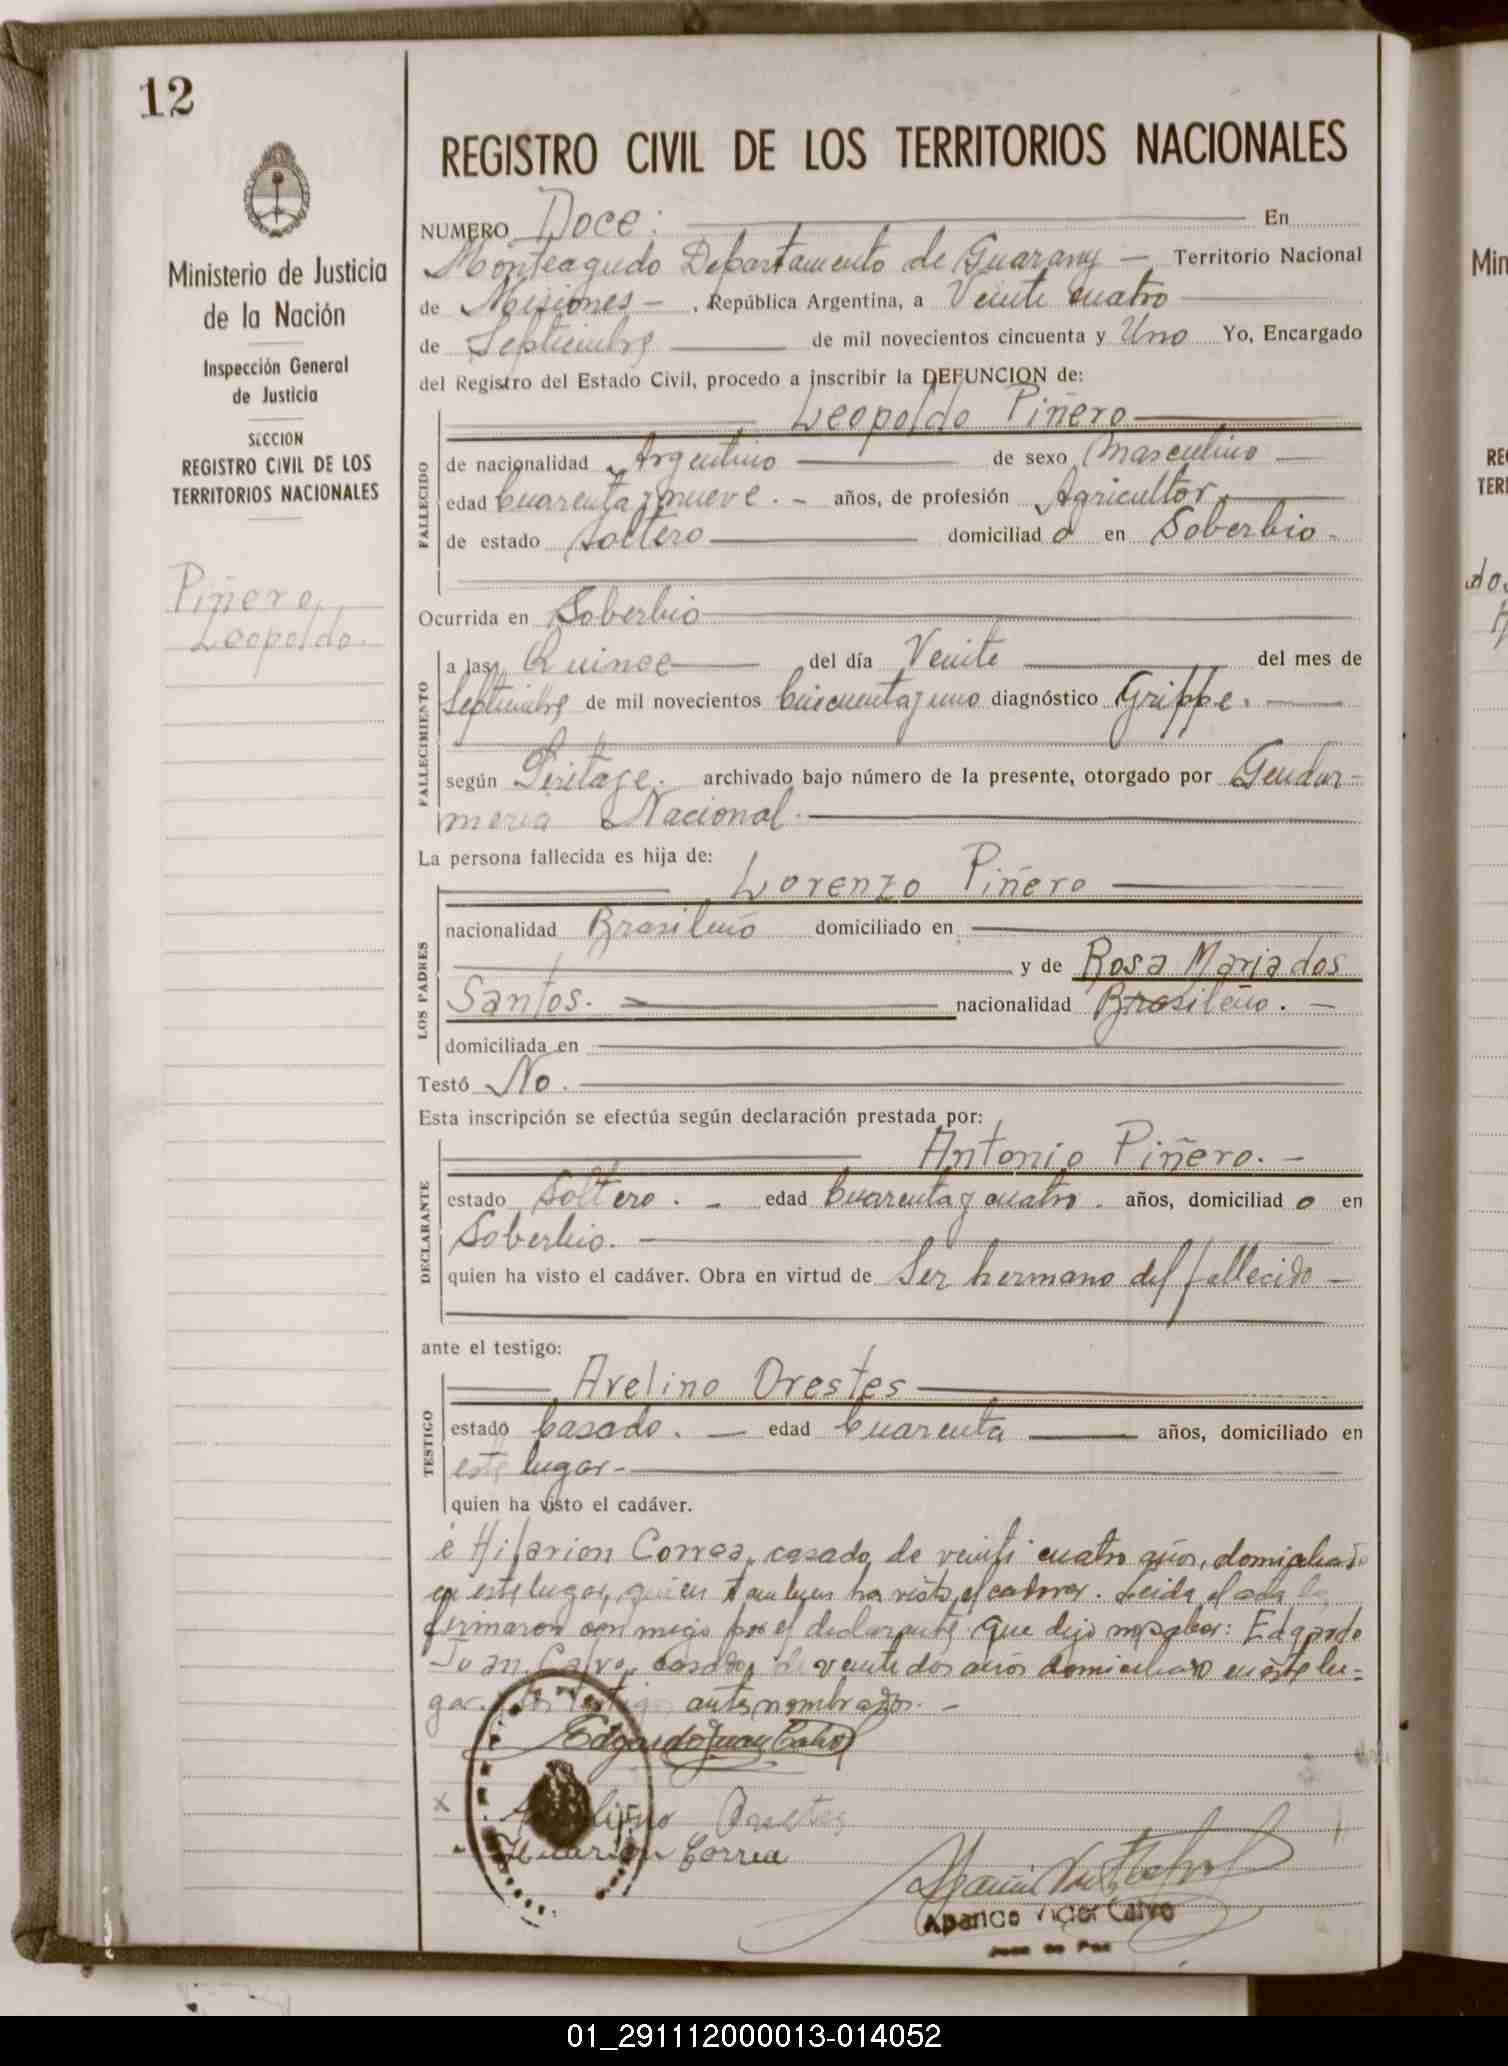 12
Ministerio de Justicia
de la Nación
Inspección General
de Justicia
SECCION
REGISTRO CIVIL DE LOS
TERRITORIOS NACIONALES
Piñero,
Leopoldo.
REGISTRO CIVIL DE LOS TERRITORIOS NACIONALES
NUMERO Doce: En
Monteagudo Departamento de Guarany — Territorio Nacional
de Misiones — , República Argentina, a Veinte cuatro
de Septiembre de mil novecientos cincuenta y Uno Yo, Encargado
del Registro del Estado Civil, procedo a inscribir la DEFUNCION de:
Leopoldo Piñero
FALLECIDO
de nacionalidad Argentino de sexo Masculino —
edad Cuarenta y nueve . - años, de profesión Agricultor.
de estado Soltero domiciliad o en Soberbio -
Ocurrida en Soberbio
FALLECIMIENTO
a las Quince del día Veinte del mes de
Septiembre de mil novecientos Cincuenta y uno diagnóstico Grippe. —
según Peritage. archivado bajo número de la presente, otorgado por Gendar-
meria Nacional.
La persona fallecida es hija de:
Lorenzo Piñero
LOS PADRES
nacionalidad Brasileño domiciliado en
y de Rosa Maria dos
Santos. nacionalidad Brasileño. —
domiciliada en
Testó No.
Esta inscripción se efectúa según declaración prestada por:
Antonio Piñero. -
DECLARANTE
estado Soltero . - edad Cuarenta y cuatro . años, domiciliad o en
Soberbio.
quien ha visto el cadáver. Obra en virtud de Ser hermano del fallecido —
ante el testigo:
Avelino Orestes
TESTIGO
estado Casado . — edad Cuarenta años, domiciliado en
este lugar.-
quien ha visto el cadáver.
é Hilarion Correa, casado, de veinti cuatro años, domiciliado
en este lugar, quien tambien ha visto el cadaver. Leida el acta la
firmaron conmigo por el declarante que dijo no saber: Edgardo
Juan Calvo, casado, de veinte dos años domiciliado en este lu-
gar. los testigos antes nombrados. -
Edgardo Juan Calvo
x Avelino Orestes
Hilarion Correa
Calvo
Juez de Paz
Min
RE
TER
dos
01_291112000013-014052